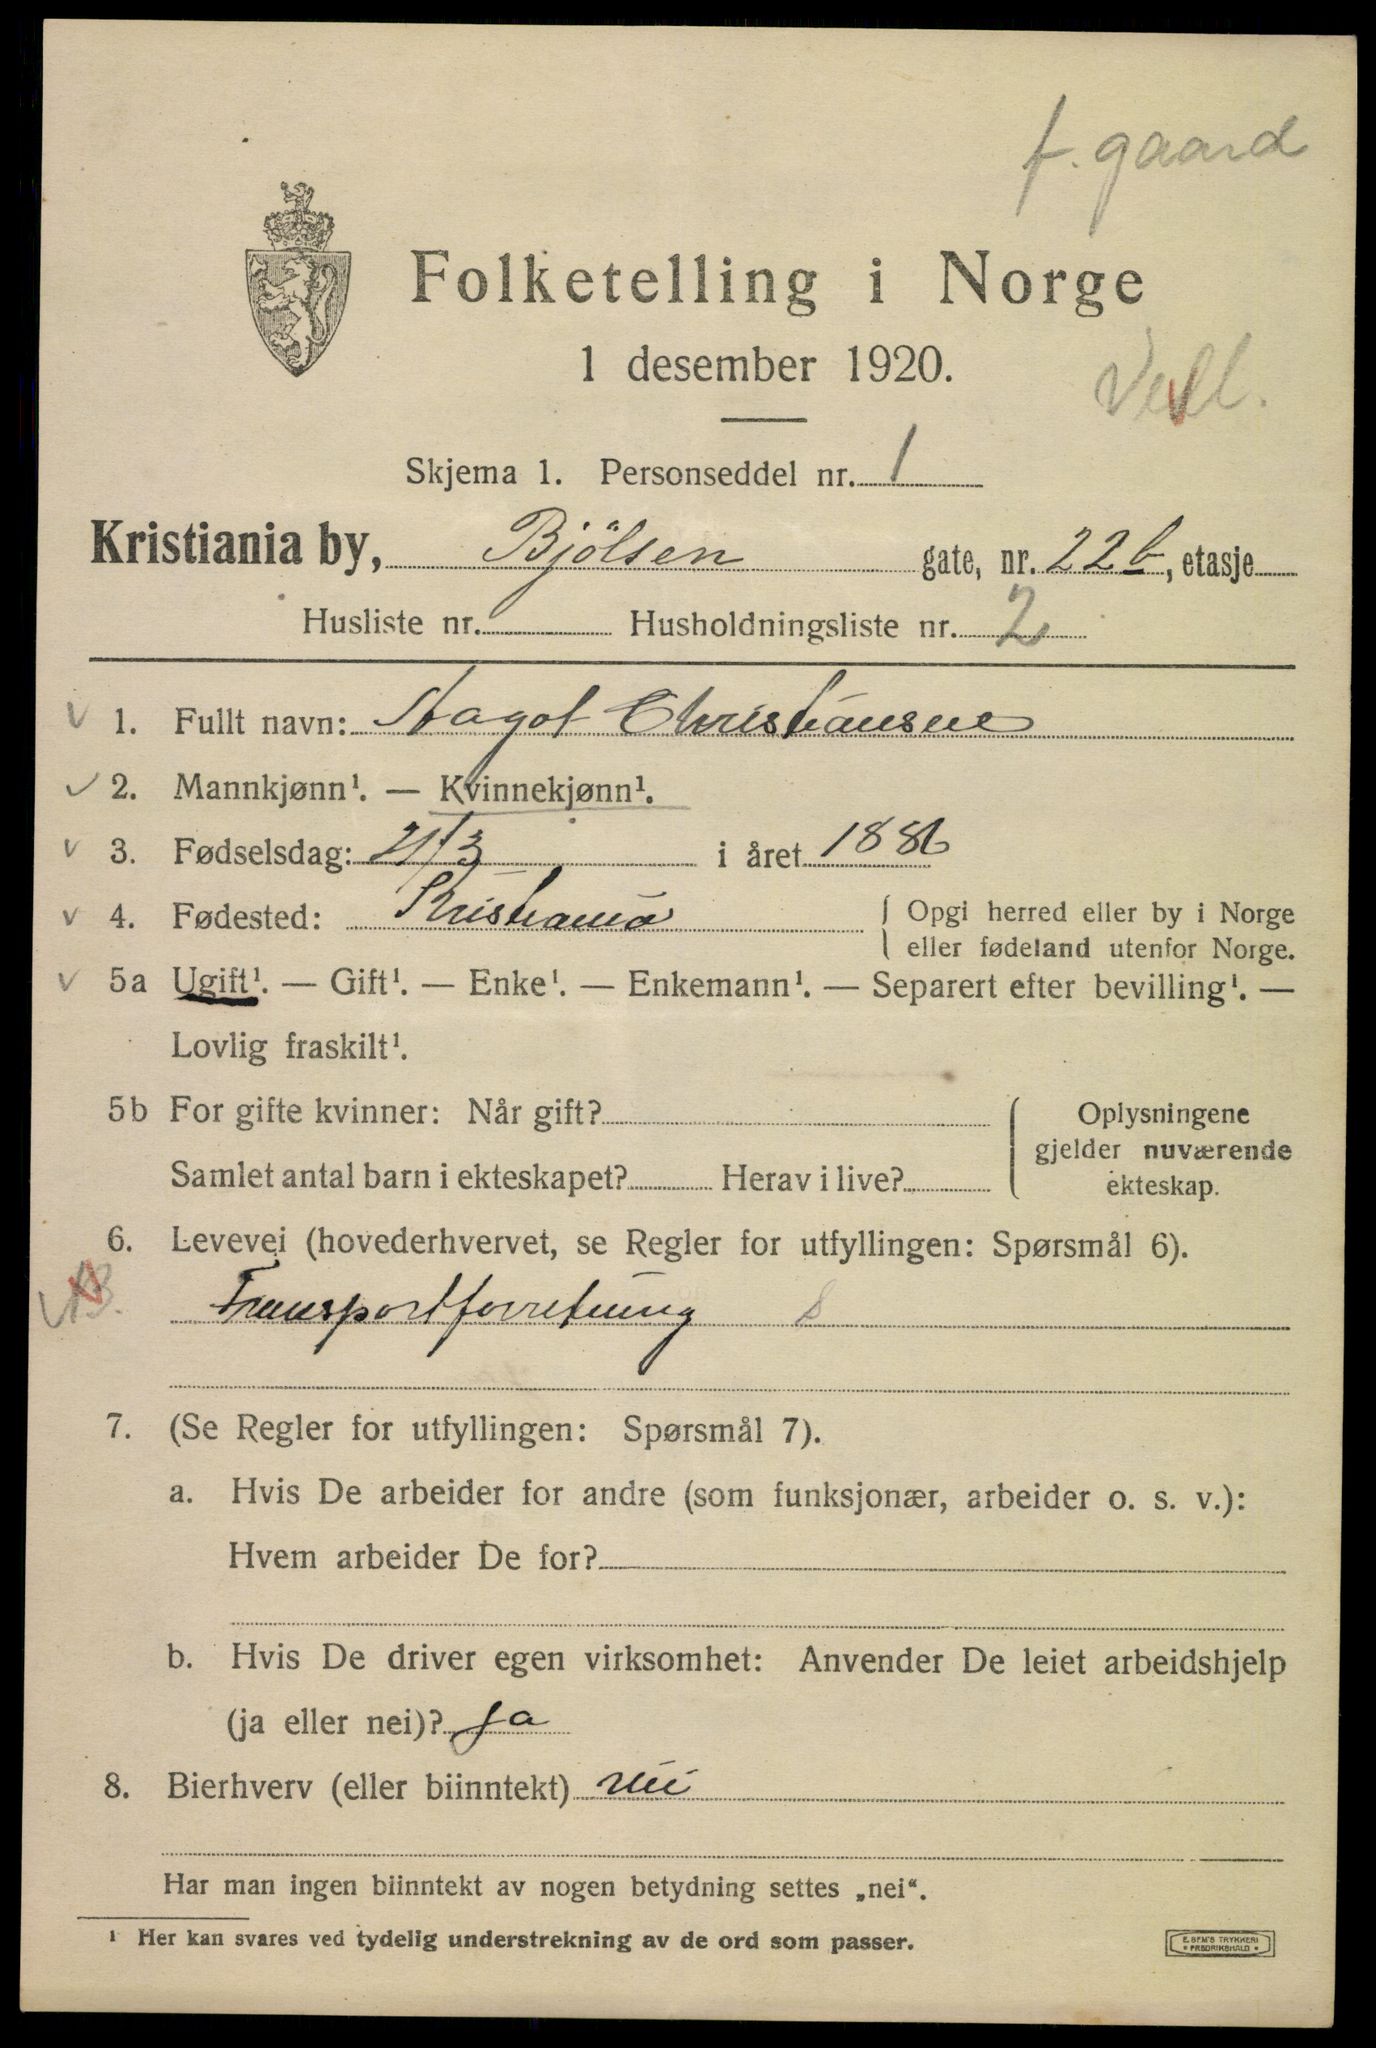 f. gaard
Folketelling i Norge
1 desember 1920.
Skjema 1. Personseddel nr. 1
Kristiania by, Bjölsen gate, nr. 22b, etasje
Husliste nr. Husholdningsliste nr. 2
1. Fullt navn: Aagot Christiansen
2. Mannkjønn¹. — Kvinnekjønn¹.
3. Fødselsdag: 21/3 i året 1886
4. Fødested: Kristiania { Opgi herred eller by i Norge
eller fødeland utenfor Norge.
5a Ugift¹. — Gift¹. — Enke¹. — Enkemann¹. — Separert efter bevilling¹. —
Lovlig fraskilt¹.
5b For gifte kvinner: Når gift?
Samlet antal barn i ekteskapet? Herav i live?
Oplysningene
gjelder nuværende
ekteskap.
6. Levevei (hovederhvervet, se Regler for utfyllingen: Spørsmål 6).
Transportforretning
7. (Se Regler for utfyllingen: Spørsmål 7).
a. Hvis De arbeider for andre (som funksjonær, arbeider o. s. v.):
Hvem arbeider De for?
b. Hvis De driver egen virksomhet: Anvender De leiet arbeidshjelp
(ja eller nei)? ja
8. Bierhverv (eller biinntekt) nei
Har man ingen biinntekt av nogen betydning settes „nei“.
¹ Her kan svares ved tydelig understrekning av de ord som passer.
E. SEM'S TRYKKERI
FREDRIKSHALD